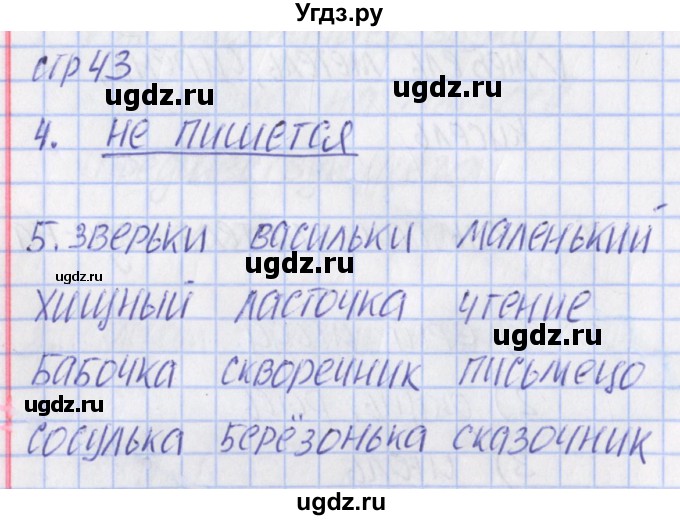 Угдз.ру
стр 43
ugdz.ru
ugdz.ru
4. не пишется
ugdz.ru
5. зверьки васильки маленький
ugdz.ru
ugdz.ru
хищный ласточка чтение
ugdz.ru
бабочка скворечник письмецо
ugdz.ru
ugdz.ru
сосулька берёзонька сказочник
ugdz.ru